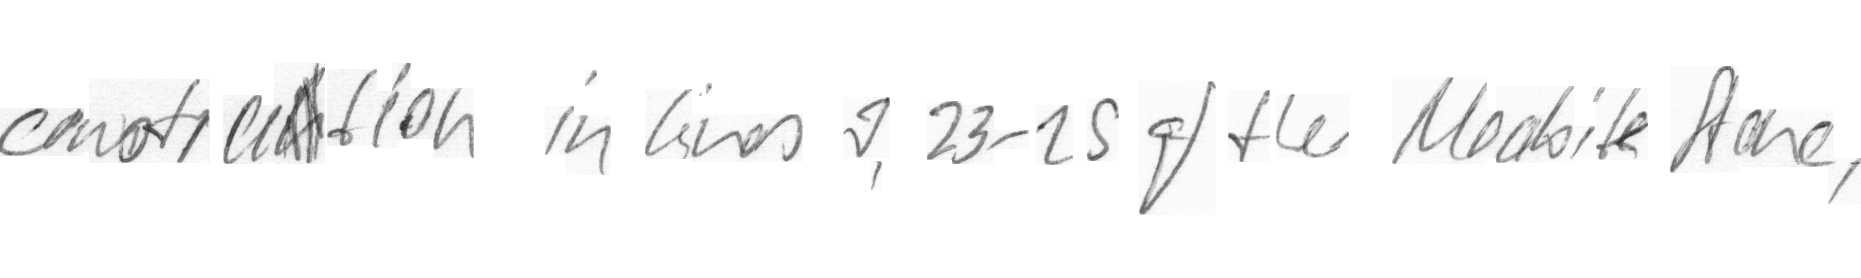 construction in lines 9, 23-25 of the Moabite Stone,